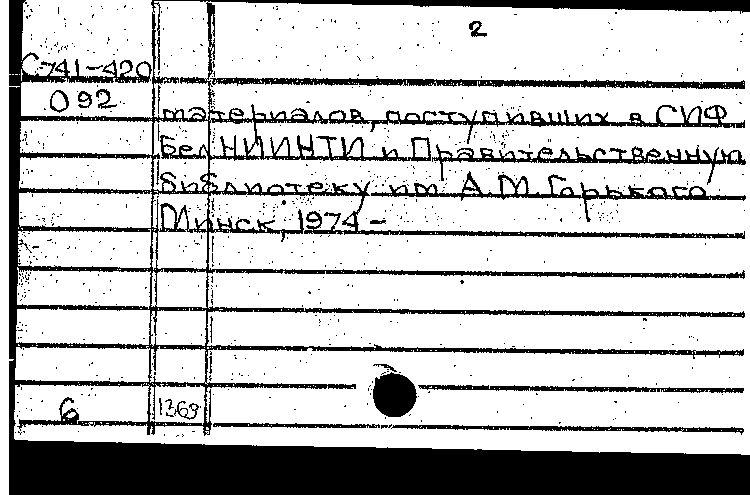 2
С741-420
092
материалов, поступивших в СИФ
БелНИИНТИ и Правительственную
библиотеку им А.М.Горького
Минск, 1974 -
6 1369